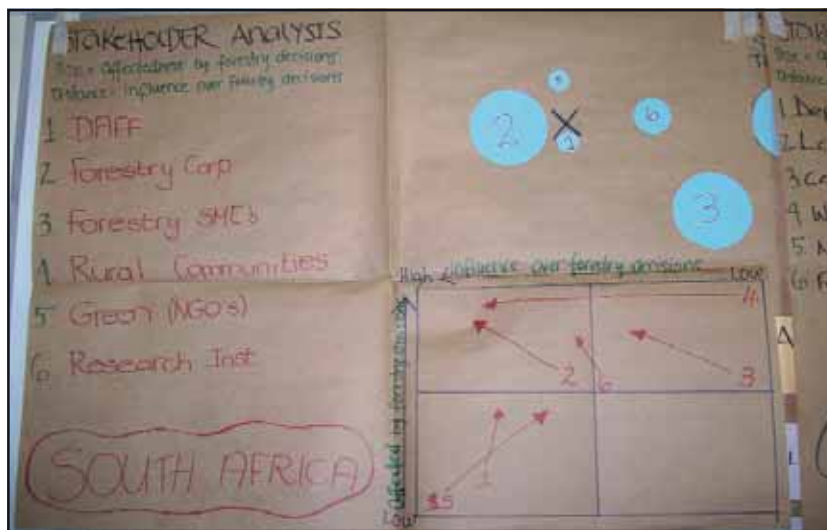 STAKEHOLDER ANALYSIS
Size = affectedness by forestry decisions
Distance = influence over forestry decisions
1 DAFF
2 Forestry Corp
3 Forestry SMEs
4 Rural Communities
5 Green (NGO's)
6 Research Inst
SOUTH AFRICA
5
2
X
1
6
3
High
influence over forestry decisions
Low
affected by forestry decisions
Low
4
2
6
3
1
5
1
2
3
4 W
5
6